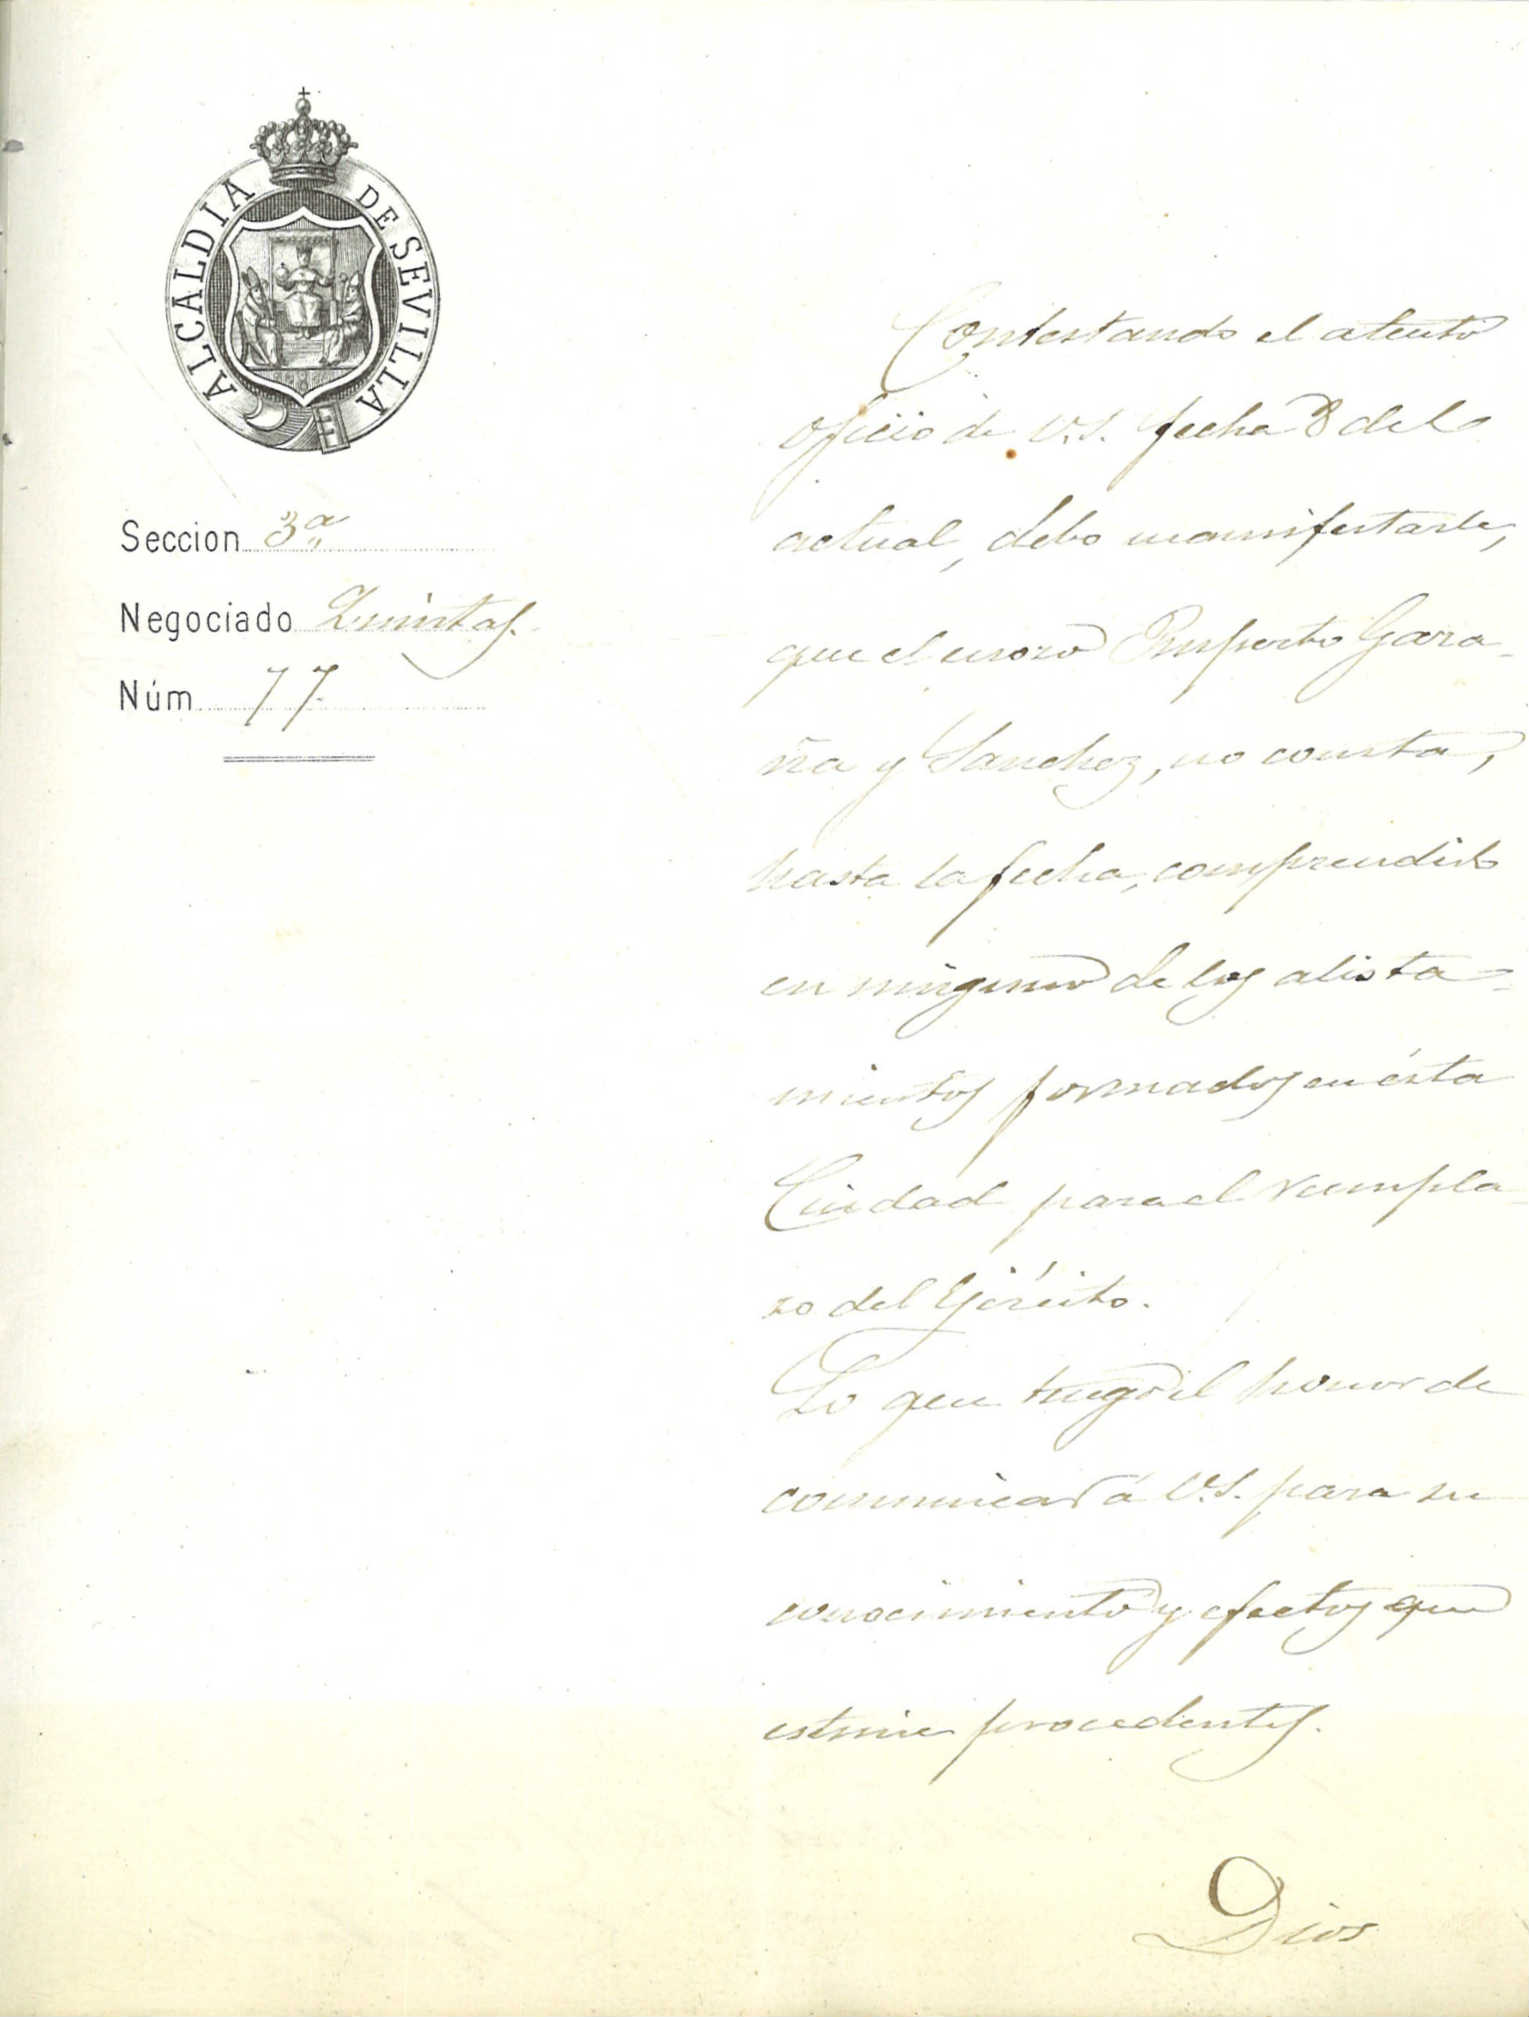 ALCALDIA DE SEVILLA
Seccion 3ª
Negociado Quintas.
Núm 77
Contestando el atento
oficio de V.S. fecha 8 del
actual, debo manifestarle,
que el mozo Ruperto Gara-
ña y Sanchez, no consta,
hasta la fecha, comprendido
en ninguno de los alista-
mientos formados en ésta
Ciudad para el reempla-
zo del Ejército.
Lo que tengo el honor de
comunicar á V.S. para su
conocimiento y efectos que
estime procedentes.
Dios